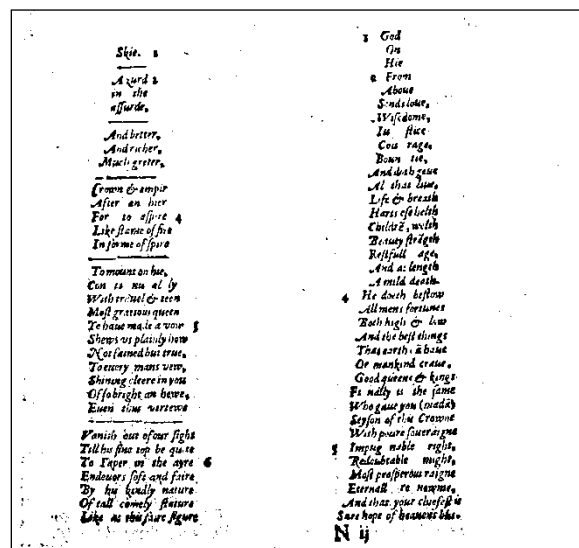 Skie. 1
Azurd 2
in the
assurde,
And better,
And richer,
Much greter,
Crown & empir
After an hier
For to aspire 4
Like flame of fire
In forme of spire
To mount on hie,
Con ti nu al ly
With trauel & teen
Most gratious queen
Ye haue made a vow 5
Shews vs plainly how
Not fained but true,
To euery mans vew,
Shining cleere in you
Of so bright an hewe,
Euen thus vertewe
Vanish out of our sight
Till his fine top be quite
To Taper in the ayre 6
Endeuors soft and faire
By his kindly nature
Of tall comely stature
Like as this faire figure
1 God
On
Hie
2 From
Aboue
Sends loue,
Wisedome,
Iu stice
Cou rage,
Boun tie,
And doth geue
Al that liue,
Life & breath
Harts ese helth
Childrē, welth
Beauty strēgth
Restfull age,
And at length
A mild death.
4 He doeth bestow
All mens fortunes
Both high & low
And the best things
That earth cā haue
Or mankind craue,
Good queens & kings
Fi nally is the same
Who gaue you (madā)
Seyson of this Crowne
With poure soueraigne
5 Impug nable right,
Redoubtable might,
Most prosperous raigne
Eternall re nowme,
And that your chiefest is
Sure hope of heauens blis.
N ij